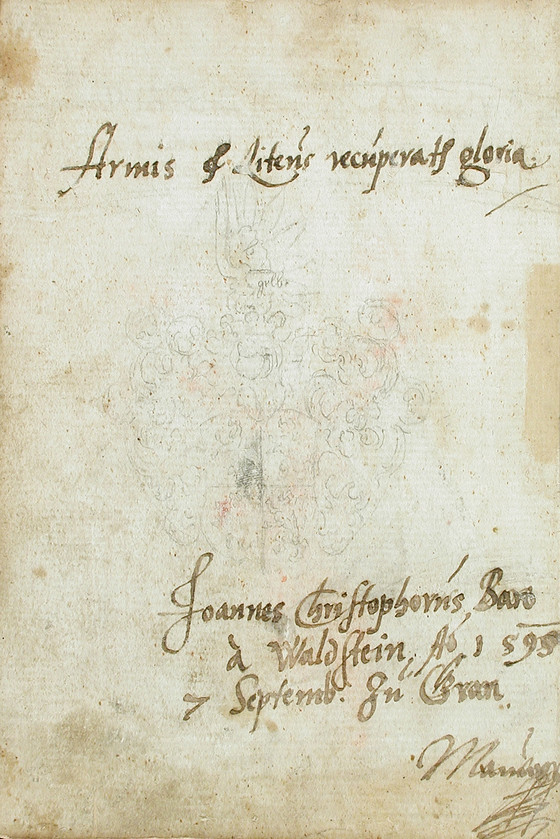 Armis et Literis recuperatur gloria.
gelb.
Joannes Christophorus Baro
à Waldstein, Aō 1595
7 Septemb. Zu Gran.